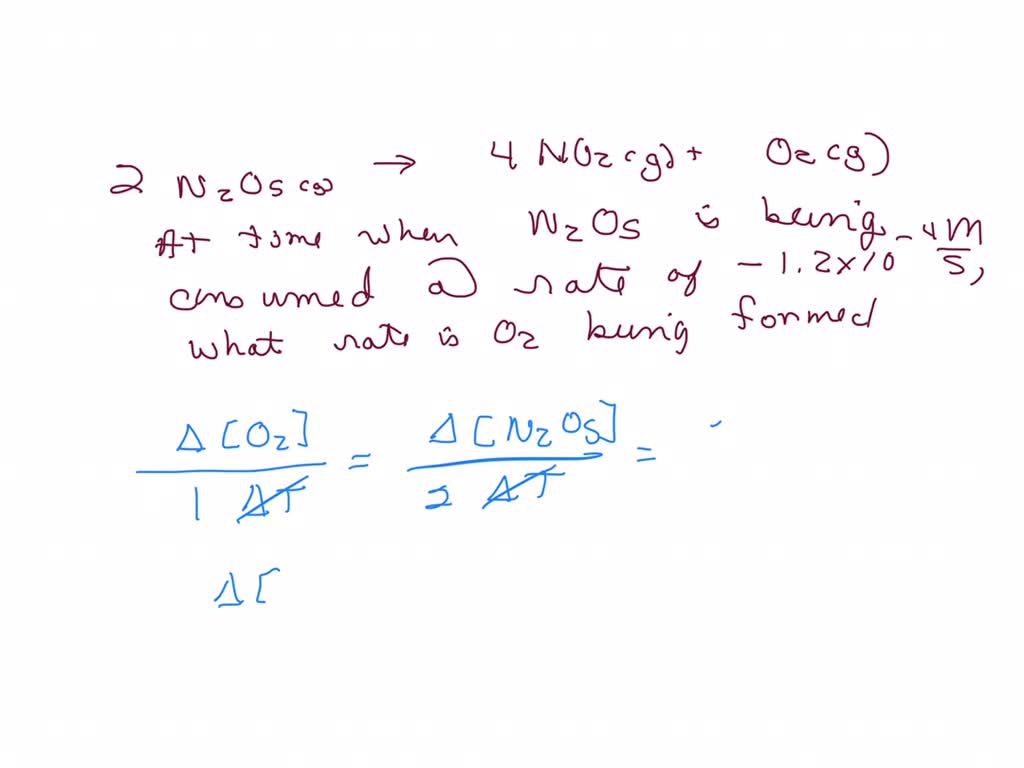 2 N2O5(g) → 4 NO2(g) + O2(g)
At time when N2O5 is being
consumed @ rate of -1.2x10^-4 M/S,
what rate is O2 being formed
Δ[O2]/1 ΔT = Δ[N2O5]/2 ΔT =
Δ[